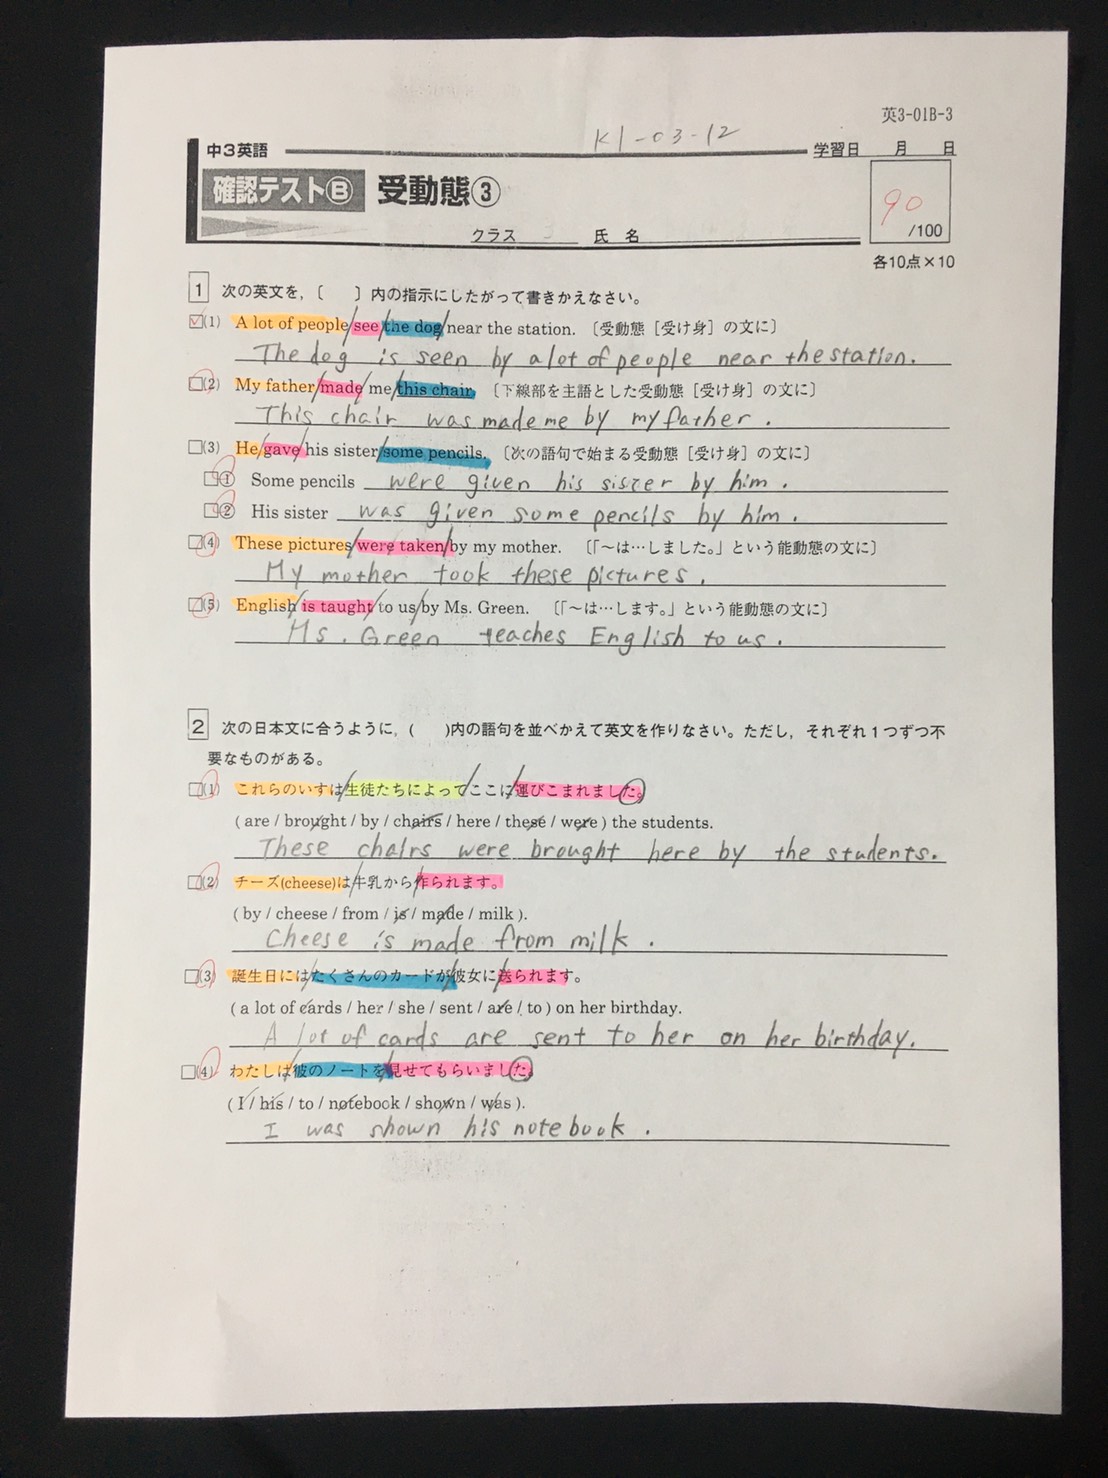 英3-01B-3
K1-03-12
中3英語
学習日 月 日
確認テストⒷ 受動態③
90
/100
クラス 氏名
各10点×10
1 次の英文を，〔 〕内の指示にしたがって書きかえなさい。
□(1) A lot of people/see/the dog/near the station. 〔受動態［受け身］の文に〕
The dog is seen by a lot of people near the station.
□(2) My father/made/me/this chair. 〔下線部を主語とした受動態［受け身］の文に〕
This chair was made me by my father.
□(3) He/gave/his sister/some pencils. 〔次の語句で始まる受動態［受け身］の文に〕
□① Some pencils were given his sister by him.
□② His sister was given some pencils by him.
□(4) These pictures/were taken/by my mother. 〔「〜は…しました。」という能動態の文に〕
My mother took these pictures.
□(5) English/is taught/to us/by Ms. Green. 〔「〜は…します。」という能動態の文に〕
Ms. Green teaches English to us.
2 次の日本文に合うように，( )内の語句を並べかえて英文を作りなさい。ただし，それぞれ1つずつ不
要なものがある。
□(1) これらのいすは/生徒たちによって/ここに/運びこまれました。
( are / brought / by / chairs / here / these / were ) the students.
These chairs were brought here by the students.
□(2) チーズ(cheese)は/牛乳から/作られます。
( by / cheese / from / is / made / milk ).
Cheese is made from milk.
□(3) 誕生日には/たくさんのカードが/彼女に/送られます。
( a lot of cards / her / she / sent / are / to ) on her birthday.
A lot of cards are sent to her on her birthday.
□(4) わたしは/彼のノートを/見せてもらいました。
( I / his / to / notebook / shown / was ).
I was shown his notebook.